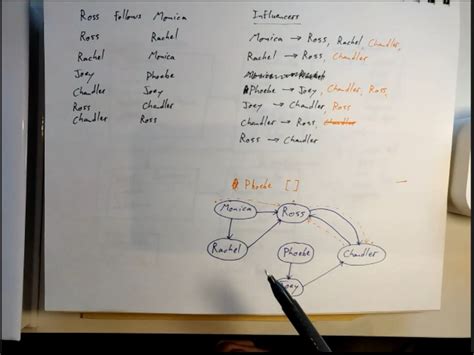 Ross Follows Monica
Ross Rachel
Rachel Monica
Joey Phoebe
Chandler Joey
Ross Chandler
Chandler Ross
Influencers
Monica → Ross, Rachel, Chandler,
Rachel → Ross, Chandler
Phoebe → Joey, Chandler, Ross,
Joey → Chandler, Ross
Chandler → Ross, Chandler
Ross → Chandler
Phoebe []
Monica
Ross
Rachel
Phoebe
Chandler
Joey